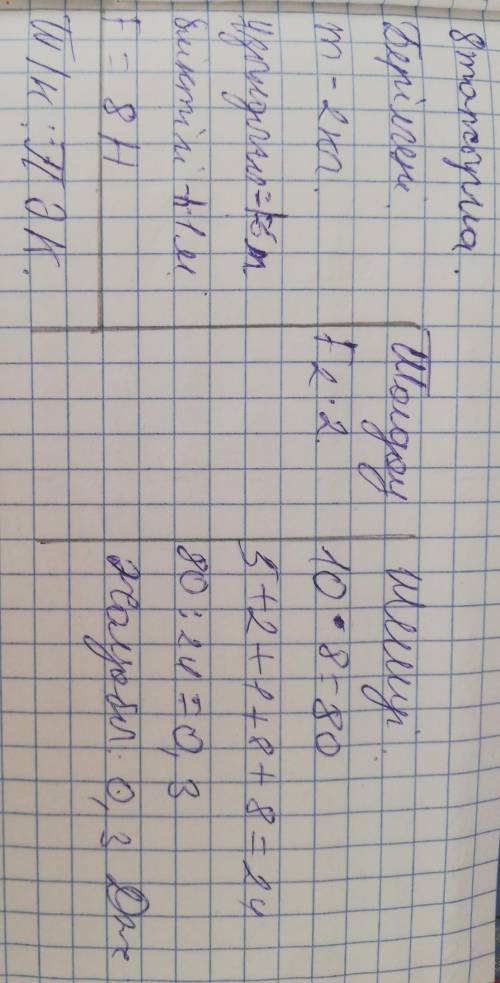 8 тапсырма.
Берілгені.
m - 2 кг.
Ұзындығы = 15 м
биіктігі 1,1 м
F = 8 Н
Т/к: ПӘК.
F 2 · 2.
Шешуі.
10 · 8 = 80
5 + 2 + 1 + 8 + 8 = 24
80 : 24 = 0,3
Жауабы: 0,3 Дж